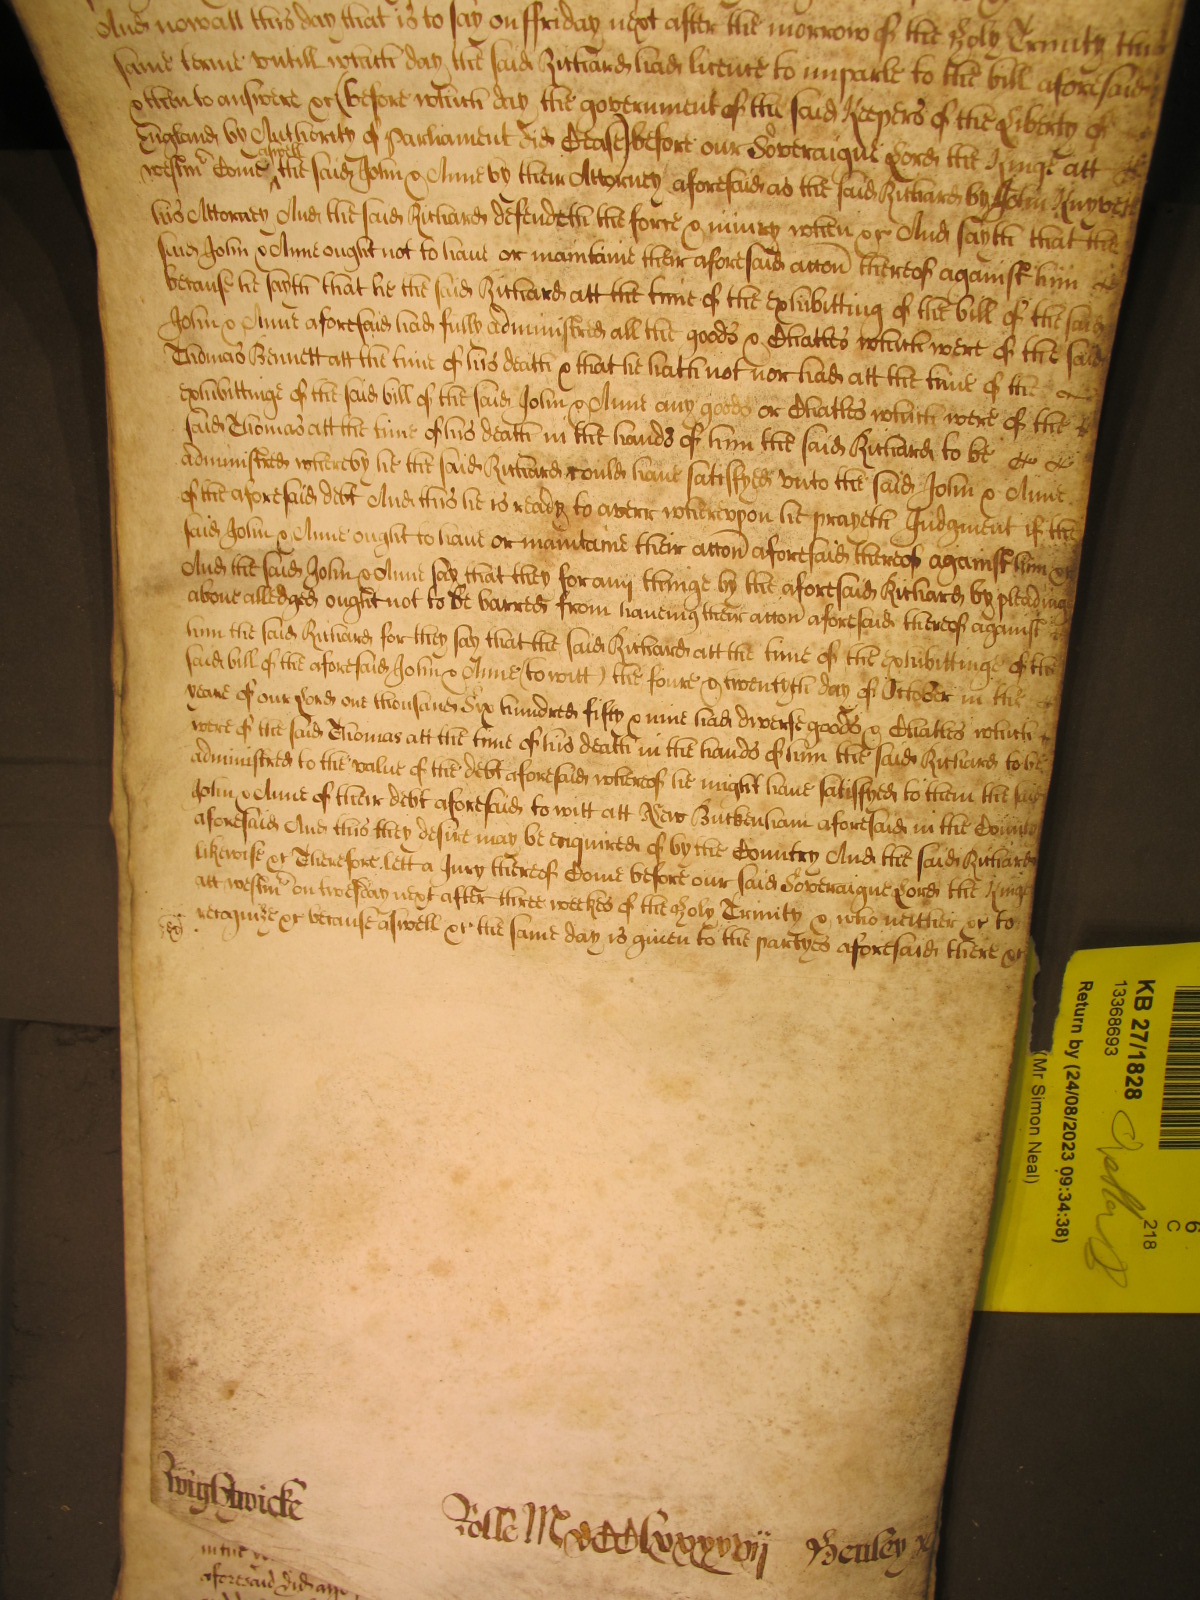 And nowe att this day that is to say on ffriday next after the morrow of the Holy Trinity this
same terme untill which day the said Richard had licence to imparle to the bill aforesaid
& then to answere &c (before which day the government of the said Keepers of the Liberty of
England by Authority of Parliament did Cease) before our Soveraigne Lord the Kinge att
Westmr Come aswell the said John & Anne by their Attorney aforesaid as the said Richard by John Knyvett
his Attorney And the said Richard defendeth the force & iniury when &c And sayth that the
said John & Anne ought not to have or maintaine their aforesaid accon thereof against him
because he sayth that he the said Richard att the time of the exhibitting of the bill of the said
John & Anne aforesaid had fully administred all the goods & Chattles which were of the said
Thomas Bennett att the time of his death & that he hath not nor had att the time of the
exhibittinge of the said bill of the said John & Anne any goods or Chattles which were of the
said Thomas att the time of his death in the hands of him the said Richard to be
administred whereby he the said Richard could have satisfyed unto the said John & Anne
of the aforesaid debt And this he is ready to averr whereupon he prayeth Judgment if the
said John & Anne ought to have or maintaine their accon aforesaid thereof against him &c
And the said John & Anne say that they for any thinge by the aforesaid Richard by pleading
above alledged ought not to be barred from haveing their accon aforesaid thereof against
him the said Richard for they say that the said Richard att the time of the exhibittinge of the
said bill of the aforesaid John & Anne (to witt) the foure & twentyth day of October in the
yeare of our Lord one thousand Six hundred fifty & nine had diverse goods & Chattles which
were of the said Thomas att the time of his death in the hands of him the said Richard to be
administred to the value of the debt aforesaid whereof he might have satisfyed to them the said
John & Anne of their debt aforesaid to witt att New Buckenham aforesaid in the County
aforesaid And this they desire may be enquired of by the Country And the said Richard
likewise &c Therefore lett a Jury thereof Come before our said Soveraigne Lord the Kinge
att Westmr on tuesday next after three weekes of the Holy Trinity & who neither &c to
recognize &c because aswell &c the same day is given to the partyes aforesaid there &c
Wightwicke
Rolle MDCClxxxvii
Henley
aforesaid did
KB 27/1828
13368693
Return by (24/08/2023 09:34:38)
(Mr Simon Neal)
218
C
6